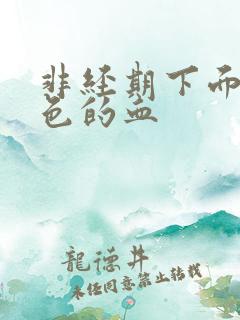 非经期下而
色的血
龍德井
未经同意禁止转载